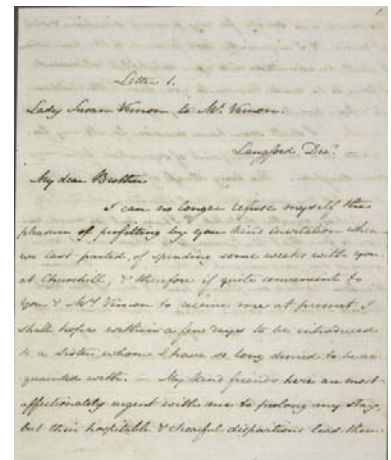 Letter 1.
Lady Susan Vernon to Mr. Vernon.
Langford, Decr.
My dear Brother
I can no longer refuse myself the
pleasure of profitting by your kind invitation when
we last parted, of spending some weeks with you
at Churchill, & therefore if quite convenient to
you & Mrs. Vernon to receive me at present, I
shall hope within a few days to be introduced
to a Sister whom I have so long desired to be ac
quainted with. — My kind friends here are most
affectionately urgent with me to prolong my stay,
but their hospitable & chearful dispositions lead them